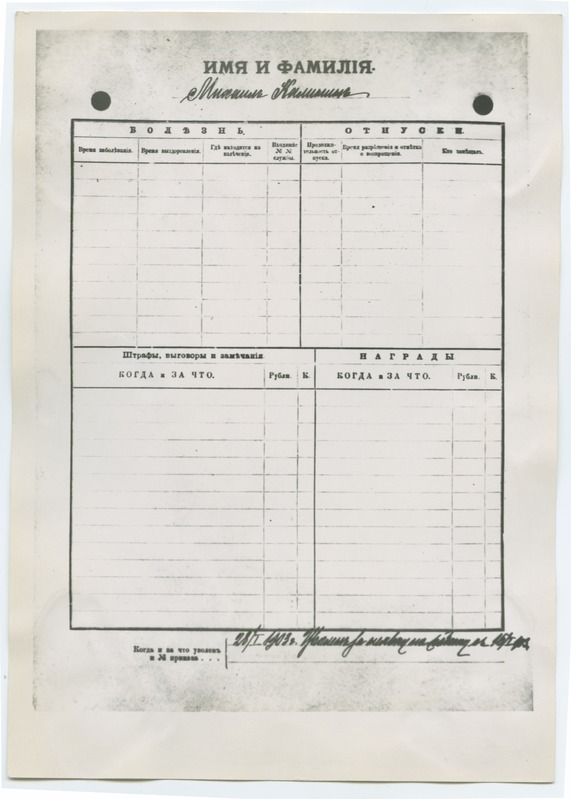 ИМЯ И ФАМИЛІЯ.
Михаилъ Калининъ
БОЛѢЗНЬ.
ОТПУСКИ.
Время заболѣванія.
Время выздоровленія.
Гдѣ находится на излѣченіи.
№ №
службы.
Продолжи-
тельность от-
пуска.
Время разрѣшенія и отмѣтка
о возвращеніи.
Кто замѣщалъ.
Штрафы, выговоры и замѣчанія
НАГРАДЫ
КОГДА и ЗА ЧТО.
Рубли.
К.
КОГДА и ЗА ЧТО.
Рубли.
К.
Когда и за что уволенъ
и № приказа . . .
28/I 1903 г. за неявку на работу съ